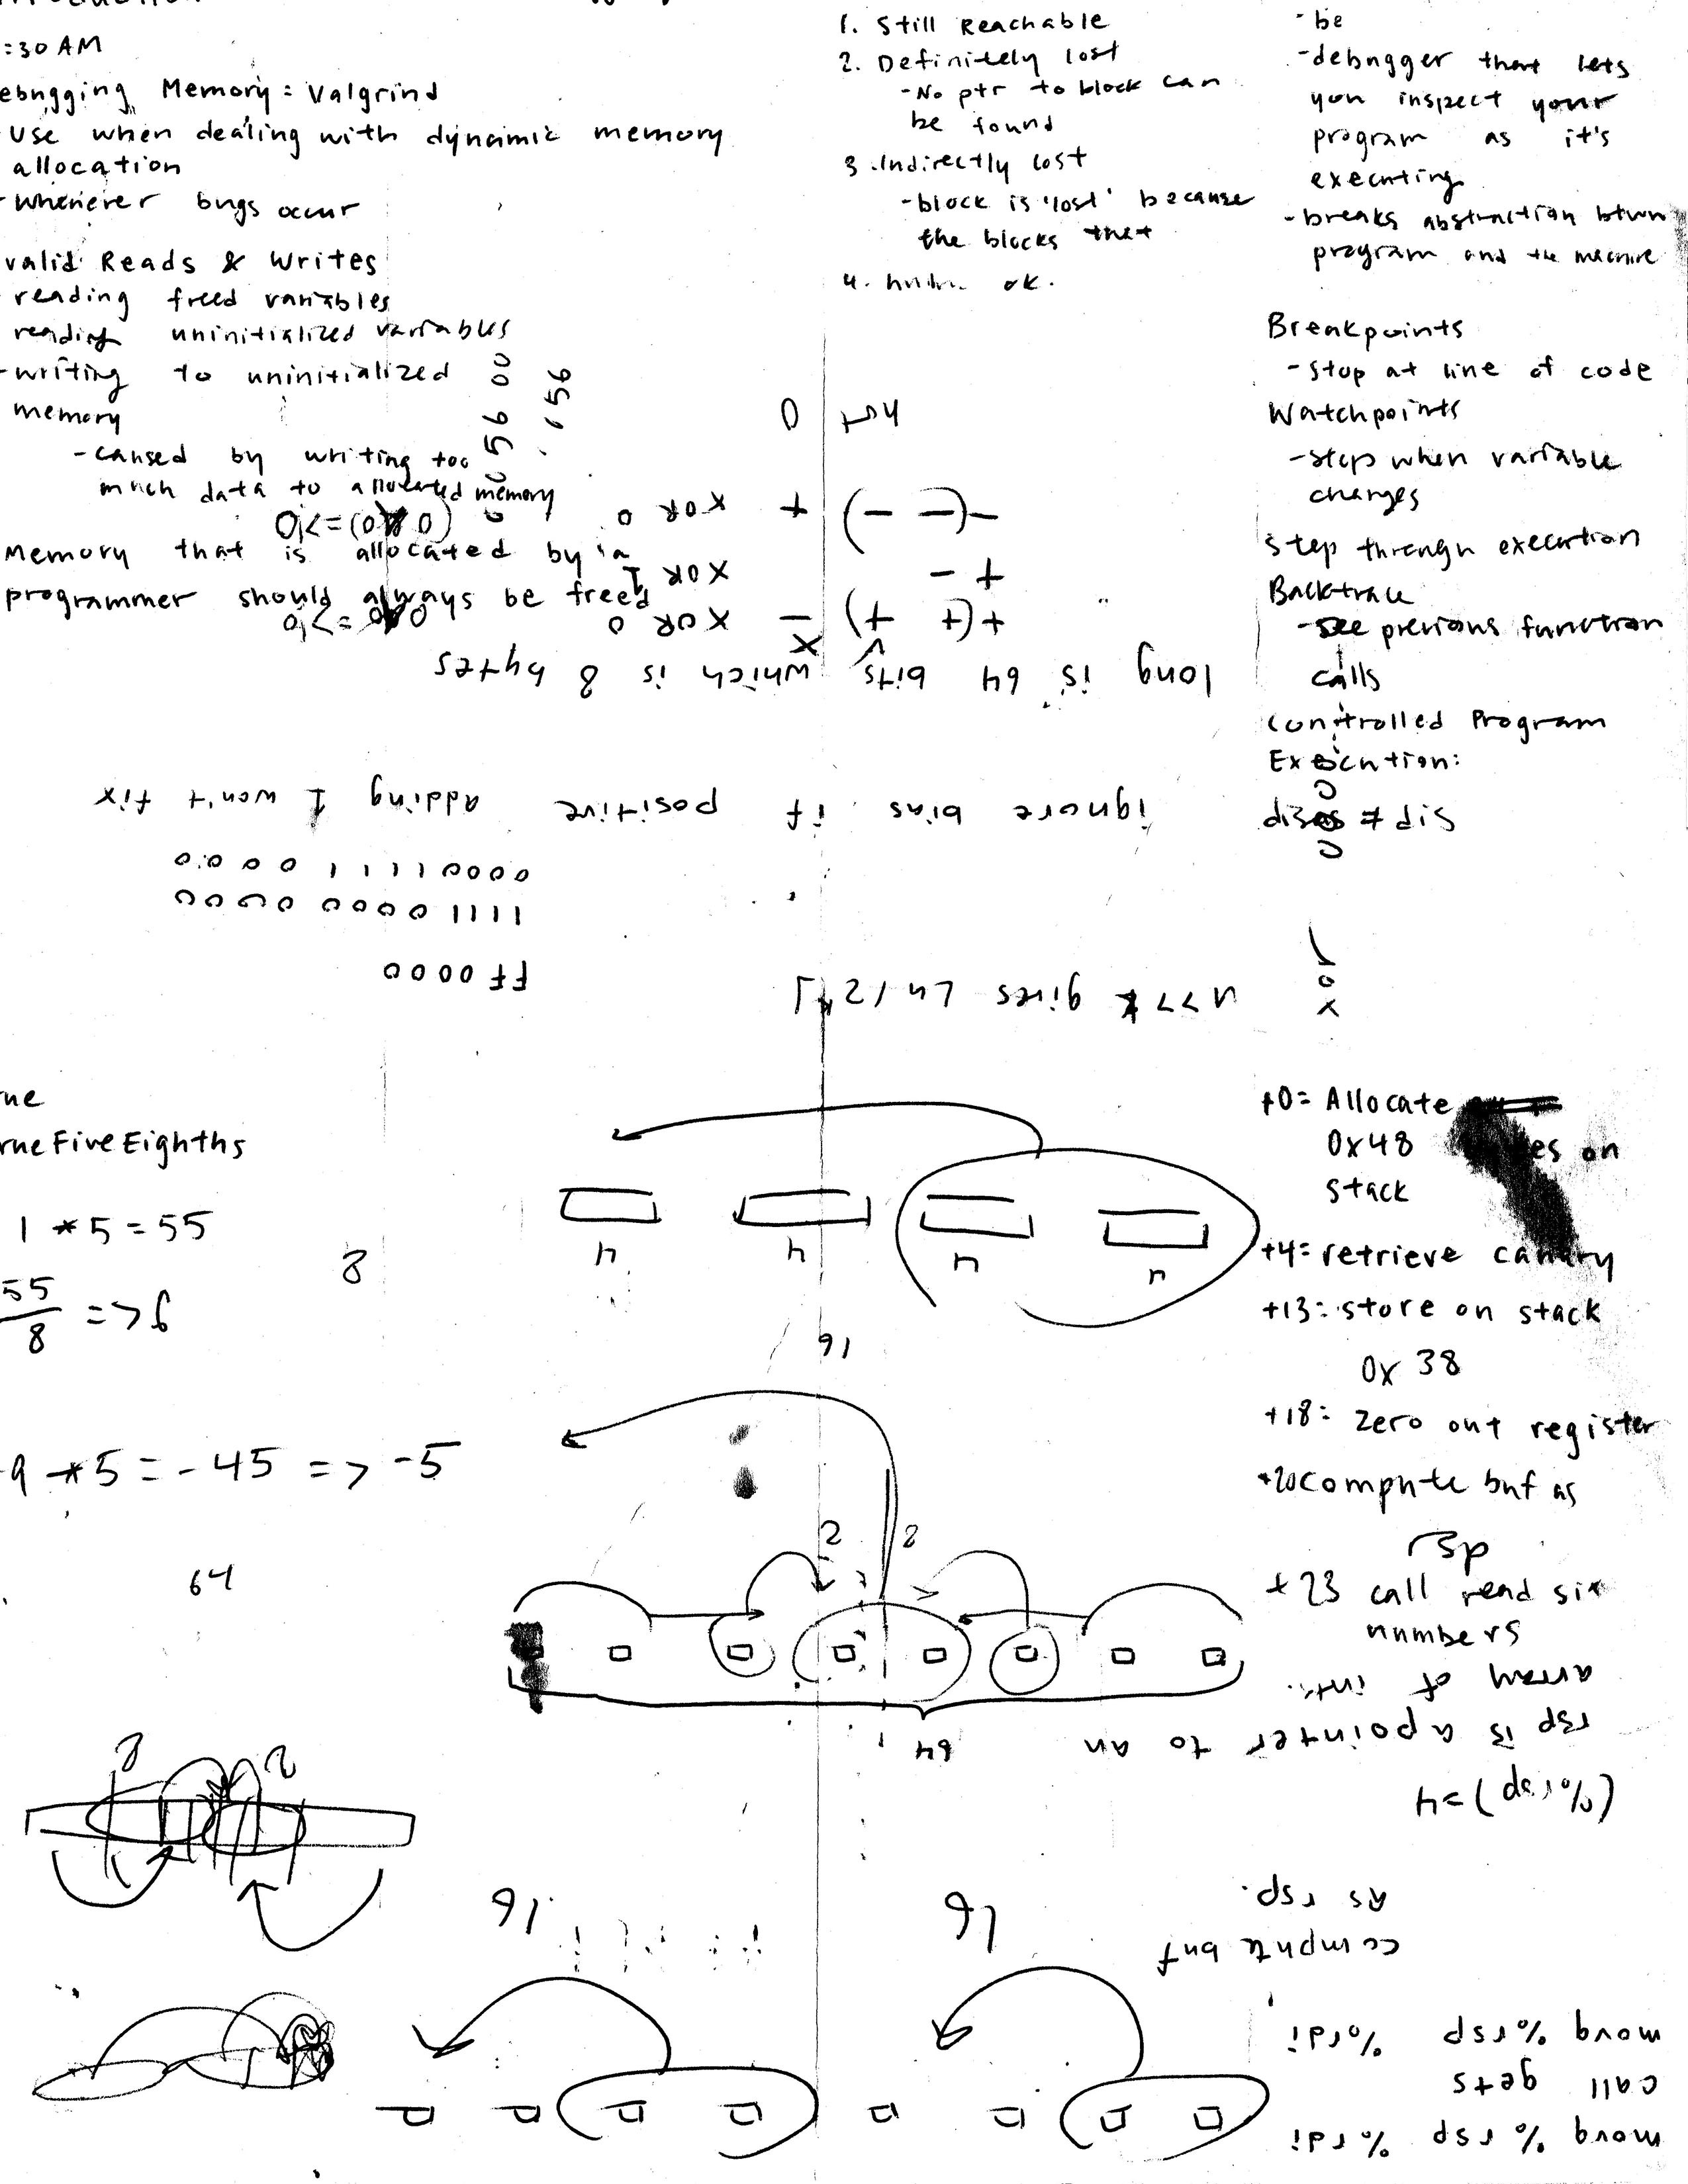 :30 AM
ebugging Memory: Valgrind
Use when dealing with dynamic memory
allocation
-whenever bugs occur
valid Reads & Writes
reading freed variables
reading uninitialized variables
-writing to uninitialized
memory
-caused by writing too
much data to allocated memory
Memory that is allocated by a
programmer should always be freed
1. Still Reachable
2. Definitely lost
-No ptr to block can
be found
3. Indirectly lost
-block is 'lost' because
the blocks that
4. ok.
-be
-debugger that lets
you inspect your
program as it's
executing
-breaks abstraction btwn
program and the machine
Breakpoints
-stop at line of code
Watchpoints
-stop when variable
changes
Step through execution
Backtrace
-see previous function
calls
Controlled Program
Execution:
disas ≠ dis
00 56 00
156
long is 64 bits which is 8 bytes
+(+ +) – XOR 0
+ – XOR 1
–(– –) + XOR 0
0
ignore bias if positive adding 1 won't fix
FF 0000
1111 0000 0000
0000 1111 0000
n>>k gives ⌊n/2^k⌋
xor
ne
rneFiveEighths
1 * 5 = 55
55
8
=> 6
8
-9 * 5 = -45 => -5
64
4 4 4 4
16
2 8
64
16
16
+0= Allocate
0x48 on
stack
+4= retrieve canary
+13: store on stack
0x 38
+18: zero out register
+20 compute buf as
rsp
+23 call read six
numbers
movq %rsp %rdi
call gets
movq %rsp %rdi
compute buf
as rsp.
(%rsp)=4
rsp is a pointer to an
array of ints.